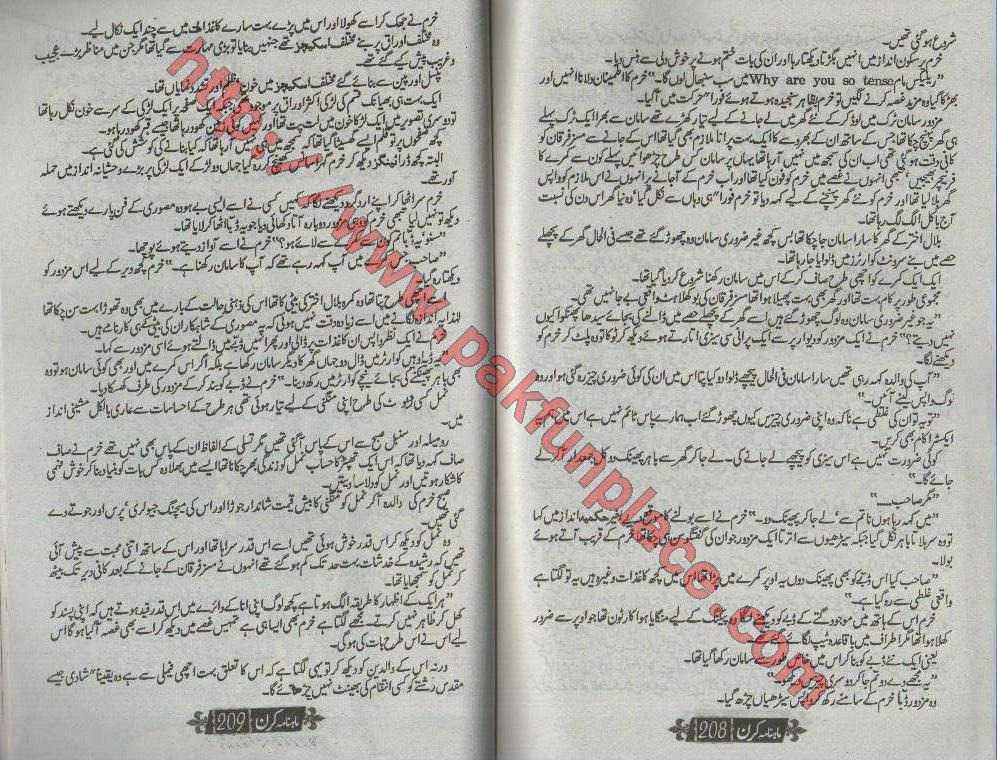 شروع ہو گئی تھیں۔
خرم پر سکون انداز میں انہیں بگڑتا دیکھتا رہا اور ان کی بات ختم ہونے پر خوش دلی سے ہنس دیا۔
"ریلیکس مام Why are you so tense میں سب سنبھال لوں گا۔" خرم کا اطمینان دلانا انہیں اور
بھڑکا گیا وہ مزید غصہ کرنے لگیں تو خرم بظاہر سنجیدہ ہوتے ہوئے فورا" حرکت میں آ گیا۔
مزدور سامان ٹرک میں لوڈ کر کے نئے گھر میں لے جانے کے لیے تیار کھڑے تھے سامان سے بھرا ایک ٹرک پہلے
ہی گھر پہنچ چکا تھا جس کے ساتھ ان کے بھروسے کا ایک بہت پرانا ملازم بھی گیا تھا اس کے جانے سے مسز فرقان کو
کافی دقت ہو گئی تھی اب ان کی سمجھ میں نہیں آ رہا تھا یہاں پر سامان کس طرح چڑھوائیں پہلے کون سے کمرے کا
فرنیچر بھیجیں' تبھی انہوں نے غصے میں خرم کو فون کیا تھا اور اب خرم کے آ جانے پر انہوں نے اس ملازم کو واپس
گھر بلا لیا تھا اور خرم کو نئے گھر پہنچنے کے لیے کہہ دیا تو خرم فورا" ہی وہاں سے نکل گیا' وہ نیا گھر اس دن کی نسبت
آج بالکل الگ لگ رہا تھا۔
بلال اختر کے گھر کا سارا سامان جا چکا تھا بس کچھ غیر ضروری سامان وہ چھوڑ گئے تھے جسے فی الحال گھر کے پچھلے
حصے میں بنے سرونٹ کوارٹرز میں ڈلوایا جا رہا تھا۔
ایک ایک کمرے کو اچھی طرح صاف کر کے اس میں سامان رکھنا شروع کر دیا گیا تھا۔
مجموعی طور پر کام بہت تھا اور گھر بھی بہت پھیلا ہوا تھا مسز فرقان کی بوکھلاہٹ واقعی بے جا نہیں تھی۔
"یہ جو غیر ضروری سامان وہ لوگ چھوڑ گئے ہیں اسے گھر کے پچھلے حصے میں ڈالنے کی بجائے سیدھا پھنکوا کیوں
نہیں دیتے؟" خرم نے ایک مزدور کو دیوار پر سے ایک پرانی سی سیزی اتارتے ہوئے دیکھ کر ٹوکا تو وہ پلٹ کر خرم کو
دیکھنے لگا۔
"آپ کی والدہ کہہ رہی تھیں سارا سامان فی الحال پیچھے ڈلوا دو کیا پتا اس میں ان کی کوئی ضروری چیز رہ گئی ہو اور وہ
لوگ واپس لینے آئیں۔"
"تو یہ تو ان کی غلطی ہے نا کہ وہ اپنی ضروری چیزیں کیوں چھوڑ گئے اب ہمارے پاس ٹائم نہیں ہے اس میں ہم یہ
ایکسٹرا کام بھی کریں۔
کوئی ضرورت نہیں ہے اس سیزی کو پیچھے لے جانے کی۔ لے جا کر گھر سے باہر پھینک دو کل جمعدار آ کر لے
جائے گا۔"
"مگر صاحب۔"
"میں کہہ رہا ہوں نا تم سے' لے جا کر پھینک دو۔" خرم نے اسے بولنے کا موقع دیے بغیر حکمیہ انداز میں کہا
تو وہ سر ہلاتا باہر نکل گیا جبکہ سیڑھیوں سے اترتا ایک مزدور جو ان کی گفتگو سن چکا تھا خرم کے قریب آتے ہوئے
بولا۔
"صاحب کیا اس ڈبے کو بھی پھینک دوں یہ اوپر کمرے میں پڑا تھا اس میں کچھ کاغذات وغیرہ ہیں یہ تو لگتا ہے
واقعی غلطی سے رہ گیا ہے۔"
خرم اس کے ہاتھ میں موجود گتے کے ڈبے کو دیکھنے لگا وہ پیکنگ کے لیے منگایا ہوا کارٹون تھا جو اوپر سے ضرور
کھلا ہوا تھا مگر اطراف میں باقاعدہ ٹیپ لگائے گئے تھے۔
یعنی ایک نئے ڈبے کو بنا کر اس میں خاص طور سے سامان رکھا گیا تھا۔
"یہ مجھے دے دو تم جا کر دوسری چیزیں دیکھو۔"
وہ مزدور ڈبا خرم کے سامنے رکھ کر واپس سیڑھیاں چڑھ گیا۔
ماہنامہ کرن 208
خرم نے جھک کر اسے کھولا اور اس میں پڑے بہت سارے کاغذات میں سے چند ایک نکال لیے۔
وہ مختلف اوراق پر بنے مختلف اسکیچز تھے جنہیں بنایا تو بڑی مہارت سے گیا تھا مگر جن میں مناظر بڑے عجیب
و غریب پیش کیے گئے تھے۔
پنسل اور پین سے بنائے گئے مختلف اسکیچز میں خون
ایک بہت ہی بھیانک قسم کی لڑکی اکثر اوراق پر موجود تھی صفحہ پر ایک لڑکی کے سر سے خون نکل رہا تھا
تو دوسری تصویر میں ایک لڑکا خون میں لت پت تھا
کچھ صفحوں پر تو قلم ایسے گھسیٹا گیا تھا کہ سمجھ میں نہیں آ رہا تھا کہ کیا بنانے کی کوشش کی گئی ہے۔
البتہ کچھ ڈرائنگز دیکھ کر خرم گہرا سانس کھینچ کر رہ گیا جہاں دو لڑکے ایک لڑکی پر بڑے وحشیانہ انداز میں حملہ
آور تھے۔
خرم سر اٹھا کر اپنے ارد گرد دیکھنے لگا کہ کہیں کسی نے اسے ایسی بے ہودہ مصوری کے فن پارے دیکھتے ہوئے
دیکھ تو نہیں لیا تبھی خرم کو وہی مزدور دوبارہ آتا دکھائی دیا جو یہ ڈبا اٹھا کر لایا تھا۔
"سنو یہ ڈبا تم کون سے کمرے سے لائے ہو؟" خرم نے اسے آواز دیتے ہوئے پوچھا۔
"صاحب جس کمرے میں آپ کہہ رہے تھے کہ آپ کا سامان رکھنا ہے۔" خرم کچھ دیر کے لیے اس مزدور کو
دیکھتا رہ گیا۔
اسے اچھی طرح پتا تھا وہ کمرہ بلال اختر کی بیٹی کا تھا اس کی ذہنی حالت کے بارے میں بھی وہ تھوڑا بہت سن چکا تھا
لہٰذا یہ اندازہ لگانے میں اسے زیادہ دقت نہیں ہوئی کہ یہ مصوری کے شاہکار ان کی بیٹی کے ہی کارنامے ہیں۔
خرم نے ایک نظر واپس ان کاغذات پر ڈالی اور پھر انہیں ڈبے میں ڈالتے ہوئے اسی مزدور سے کہا۔
"یہ ڈبا وہیں کوارٹر میں ڈال دو جہاں گھر کا دیگر سامان رکھا ہے بلکہ اگر اس کمرے میں اور بھی کوئی سامان ہو تو وہ
بھی باہر پھینکنے کی بجائے پیچھے کوارٹر میں رکھ دینا۔" خرم نے ڈبے کو بند کر کے مزدور کی طرف کھسکا دیا۔
نمل کسی روبوٹ کی طرح اپنی منگنی کے لیے تیار ہوئی تھی ہر طرح کے احساسات سے عاری بالکل مشینی انداز
میں۔
رومیلہ اور سنبل صبح سے اس کے پاس آ گئی تھیں مگر تسلی کے الفاظ ان کے پاس بھی نہیں تھے خرم نے صاف
صاف کہہ دیا تھا کہ اس ایک تھپڑ کا حساب نمل کو زندگی بھر چکانا تھا ایسے میں بھلا وہ کس بات کو بنیاد بنا کر خوش فہمی
کا شکار ہوتیں اور نمل کو دلاسا دیتیں۔
صبح خرم کی والدہ آ کر نمل کو منگنی کا بیش قیمت شاندار جوڑا اور اس کی میچنگ جیولری' پرس اور جوتے دے
گئی تھیں۔
وہ نمل کو دیکھ کر اس قدر خوش ہوئی تھیں اسے اس قدر سراہا تھا اور اس کے ساتھ اتنی محبت سے پیش آئی
تھیں کہ رشیدہ کے خدشات بہت حد تک کم ہو گئے تھے انہوں نے مسز فرقان کے جانے کے بعد کافی دیر تک بیٹھ
کر نمل کو سمجھایا تھا۔
"ہر ایک کے اظہار کا طریقہ الگ ہوتا ہے کچھ لوگ اپنی انا کے دائرے میں اس قدر قید ہوتے ہیں کہ اپنی پسند کو
کھل کر ظاہر نہیں کرتے۔ مجھے لگتا ہے خرم بھی ایسا ہی ہے تمہیں غصے میں دیکھ کر اسے بھی غصہ آ گیا ہو گا اس
لیے اس نے اس طرح بات کی ہو گی۔
ورنہ اس کے والدین کو دیکھ کر تو یہی لگتا ہے کہ اس کا تعلق بہت اچھی فیملی سے ہے وہ یقیناً" شادی جیسے
مقدس رشتے کو کسی انتقام کی بھینٹ نہیں چڑھائے گا۔
ماہنامہ کرن 209
http://www.pakfunplace.com